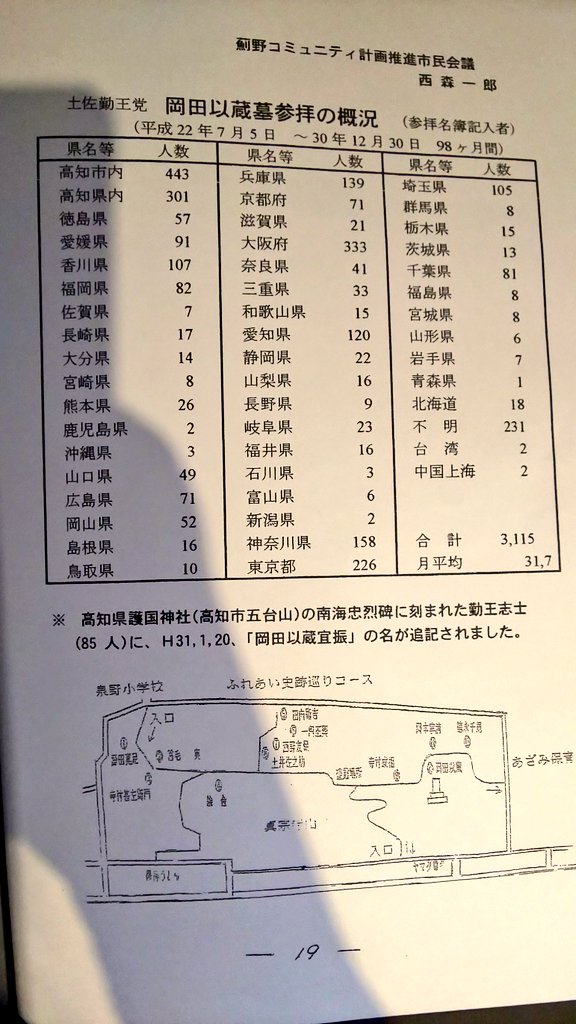 薊野コミュニティ計画推進市民会議
西森一郎
土佐勤王党 岡田以蔵墓参拝の概況 (参拝名簿記入者)
(平成22年7月5日 ～30年12月30日 98ヶ月間)
県名等 人数 県名等 人数 県名等 人数
高知市内 443 兵庫県 139 埼玉県 105
高知県内 301 京都府 71 群馬県 8
徳島県 57 滋賀県 21 栃木県 15
愛媛県 91 大阪府 333 茨城県 13
香川県 107 奈良県 41 千葉県 81
福岡県 82 三重県 33 福島県 8
佐賀県 7 和歌山県 15 宮城県 8
長崎県 17 愛知県 120 山形県 6
大分県 14 静岡県 22 岩手県 7
宮崎県 8 山梨県 16 青森県 1
熊本県 26 長野県 9 北海道 18
鹿児島県 2 岐阜県 23 不明 231
沖縄県 3 福井県 16 台湾 2
山口県 49 石川県 3 中国上海 2
広島県 71 富山県 6
岡山県 52 新潟県 2
島根県 16 神奈川県 158 合計 3,115
鳥取県 10 東京都 226 月平均 31,7
※ 高知県護国神社(高知市五台山)の南海忠烈碑に刻まれた勤王志士
(85人)に、H31,1,20、「岡田以蔵宜振」の名が追記されました。
泉野小学校 ふれあい史跡巡りコース
入口
土井佐之助
あざみ保育
真宗寺山
入口
― 19 ―